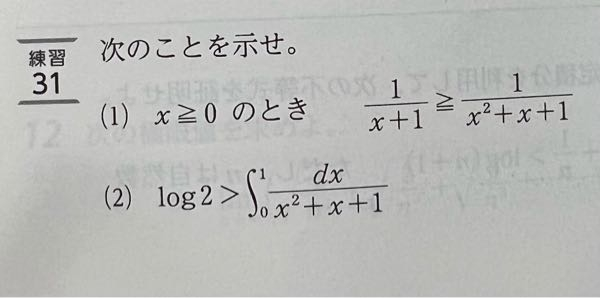 練習
31
次のことを示せ。
(1) x≧0 のとき 1/(x+1) ≧ 1/(x²+x+1)
(2) log2>∫₀¹ dx/(x²+x+1)